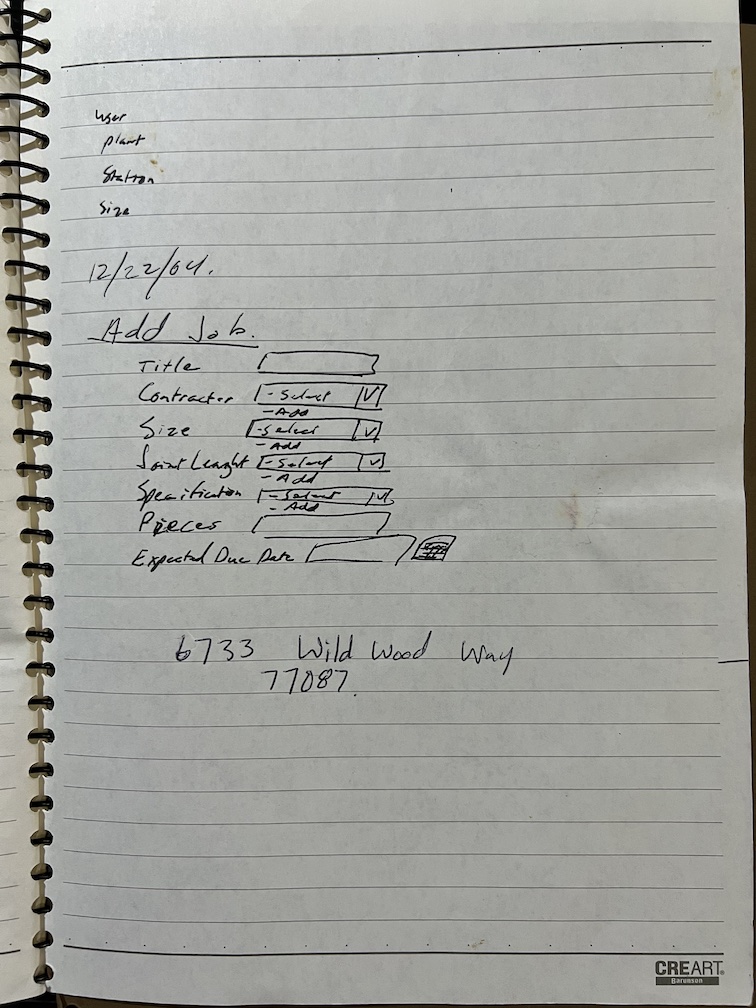 User
plant
Station
Size
12/22/04.
Add Job.
Title
Contractor - Select
- Add
Size - Select
- Add
Joint Lenght - Select
- Add
Specification - Select
- Add
Pieces
Expected Due Date
6733 Wild Wood Way
77087.
CREART
Barunson